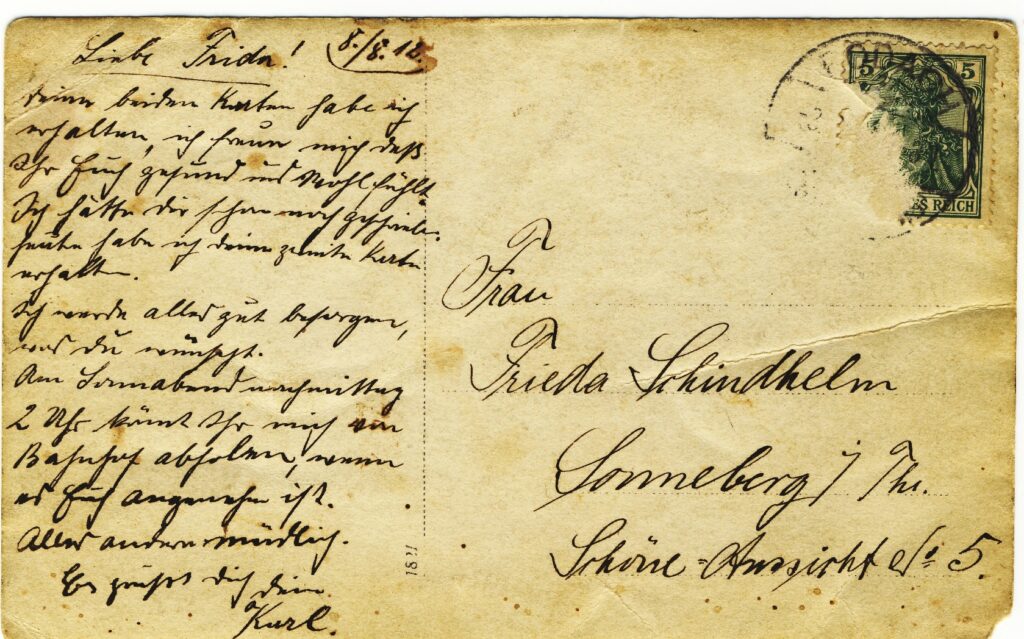 Liebe Frida! 8./8.12.
deine beiden Karten habe ich
erhalten, ich freue mich daß
Ihr Euch gesund und Wohl fühlt.
Ich hätte dir schon noch geschrieben
heute habe ich deine zweite Karte
erhalten.
Ich werde alles gut besorgen,
was du wünscht.
Am Sonnabend nachmittag
2 Uhr könnt Ihr mich von
Bahnhof abholen, wenn
es Euch angenehm ist.
Alles andere mündlich.
Es grüßt dich dein
Karl.
1821
5 5
ES REICH
Frau
Frieda Schindhelm
Sonneberg i/ Th.
Schöne-Aussicht No 5.